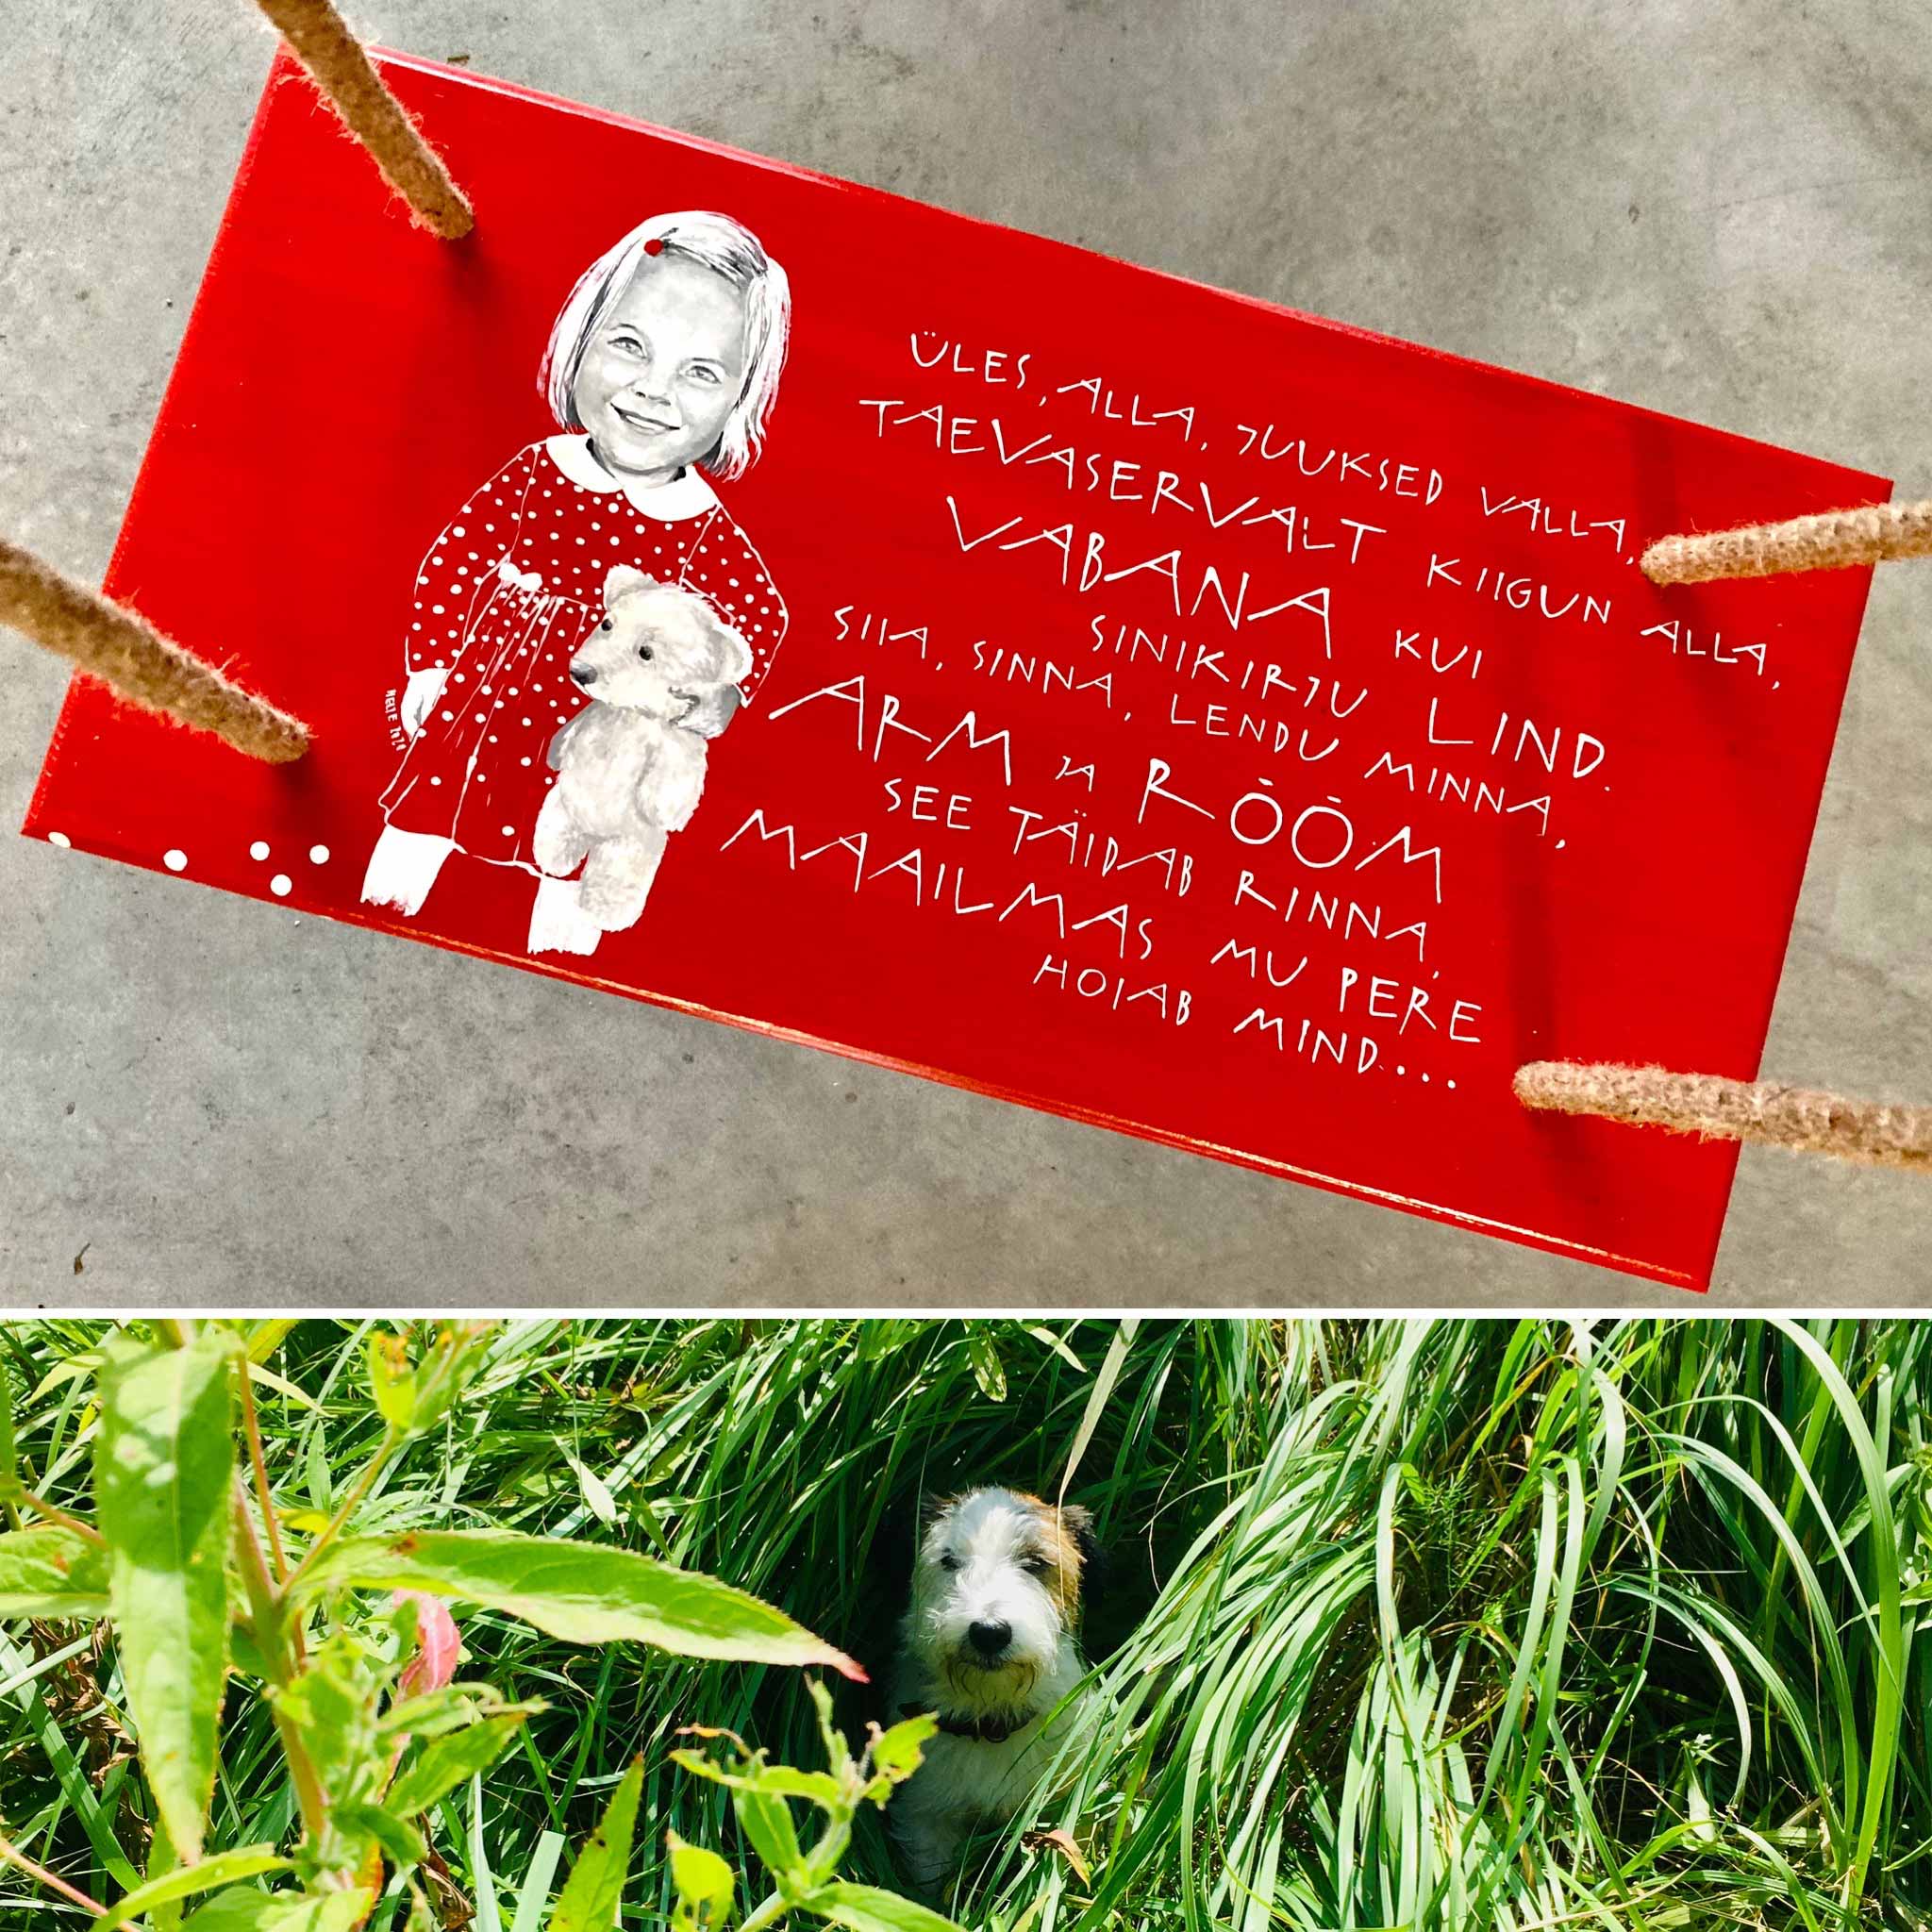 ÜLES, ALLA, JUUKSED VALLA,
TAEVASERVALT KIIGUN ALLA,
VABANA KUI
SINIKIRJU LIND.
SIIA, SINNA, LENDU MINNA,
ARM JA RÕÕM
SEE TÄIDAB RINNA,
MAAILMAS MU PERE
HOIAB MIND...